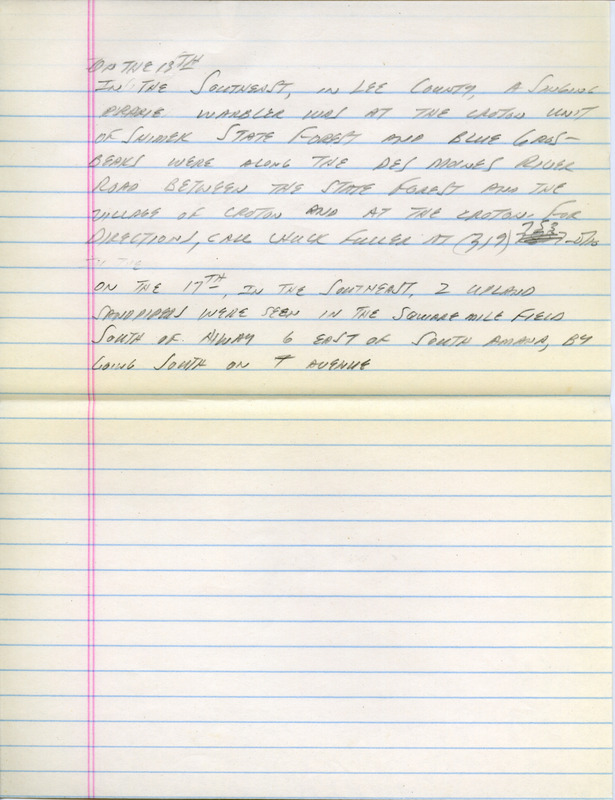 ON THE 13TH
IN THE SOUTHEAST, IN LEE COUNTY, A SINGING
PRARIE WARBLER WAS AT THE CROTON UNIT
OF SHIMEK STATE FOREST AND BLUE GROS-
BEAKS WERE ALONG THE DES MOINES RIVER
ROAD BETWEEN THE STATE FOREST AND THE
VILLAGE OF CROTON AND AT THE CROTON. FOR
DIRECTIONS, CALL CHUCK FULLER AT (319)
ON THE 17TH, IN THE SOUTHEAST, 2 UPLAND
SANDPIPERS WERE SEEN IN THE SQUARE MILE FIELD
SOUTH OF HIWAY 6 EAST OF SOUTH AMANA, BY
GOING SOUTH ON T AVENUE